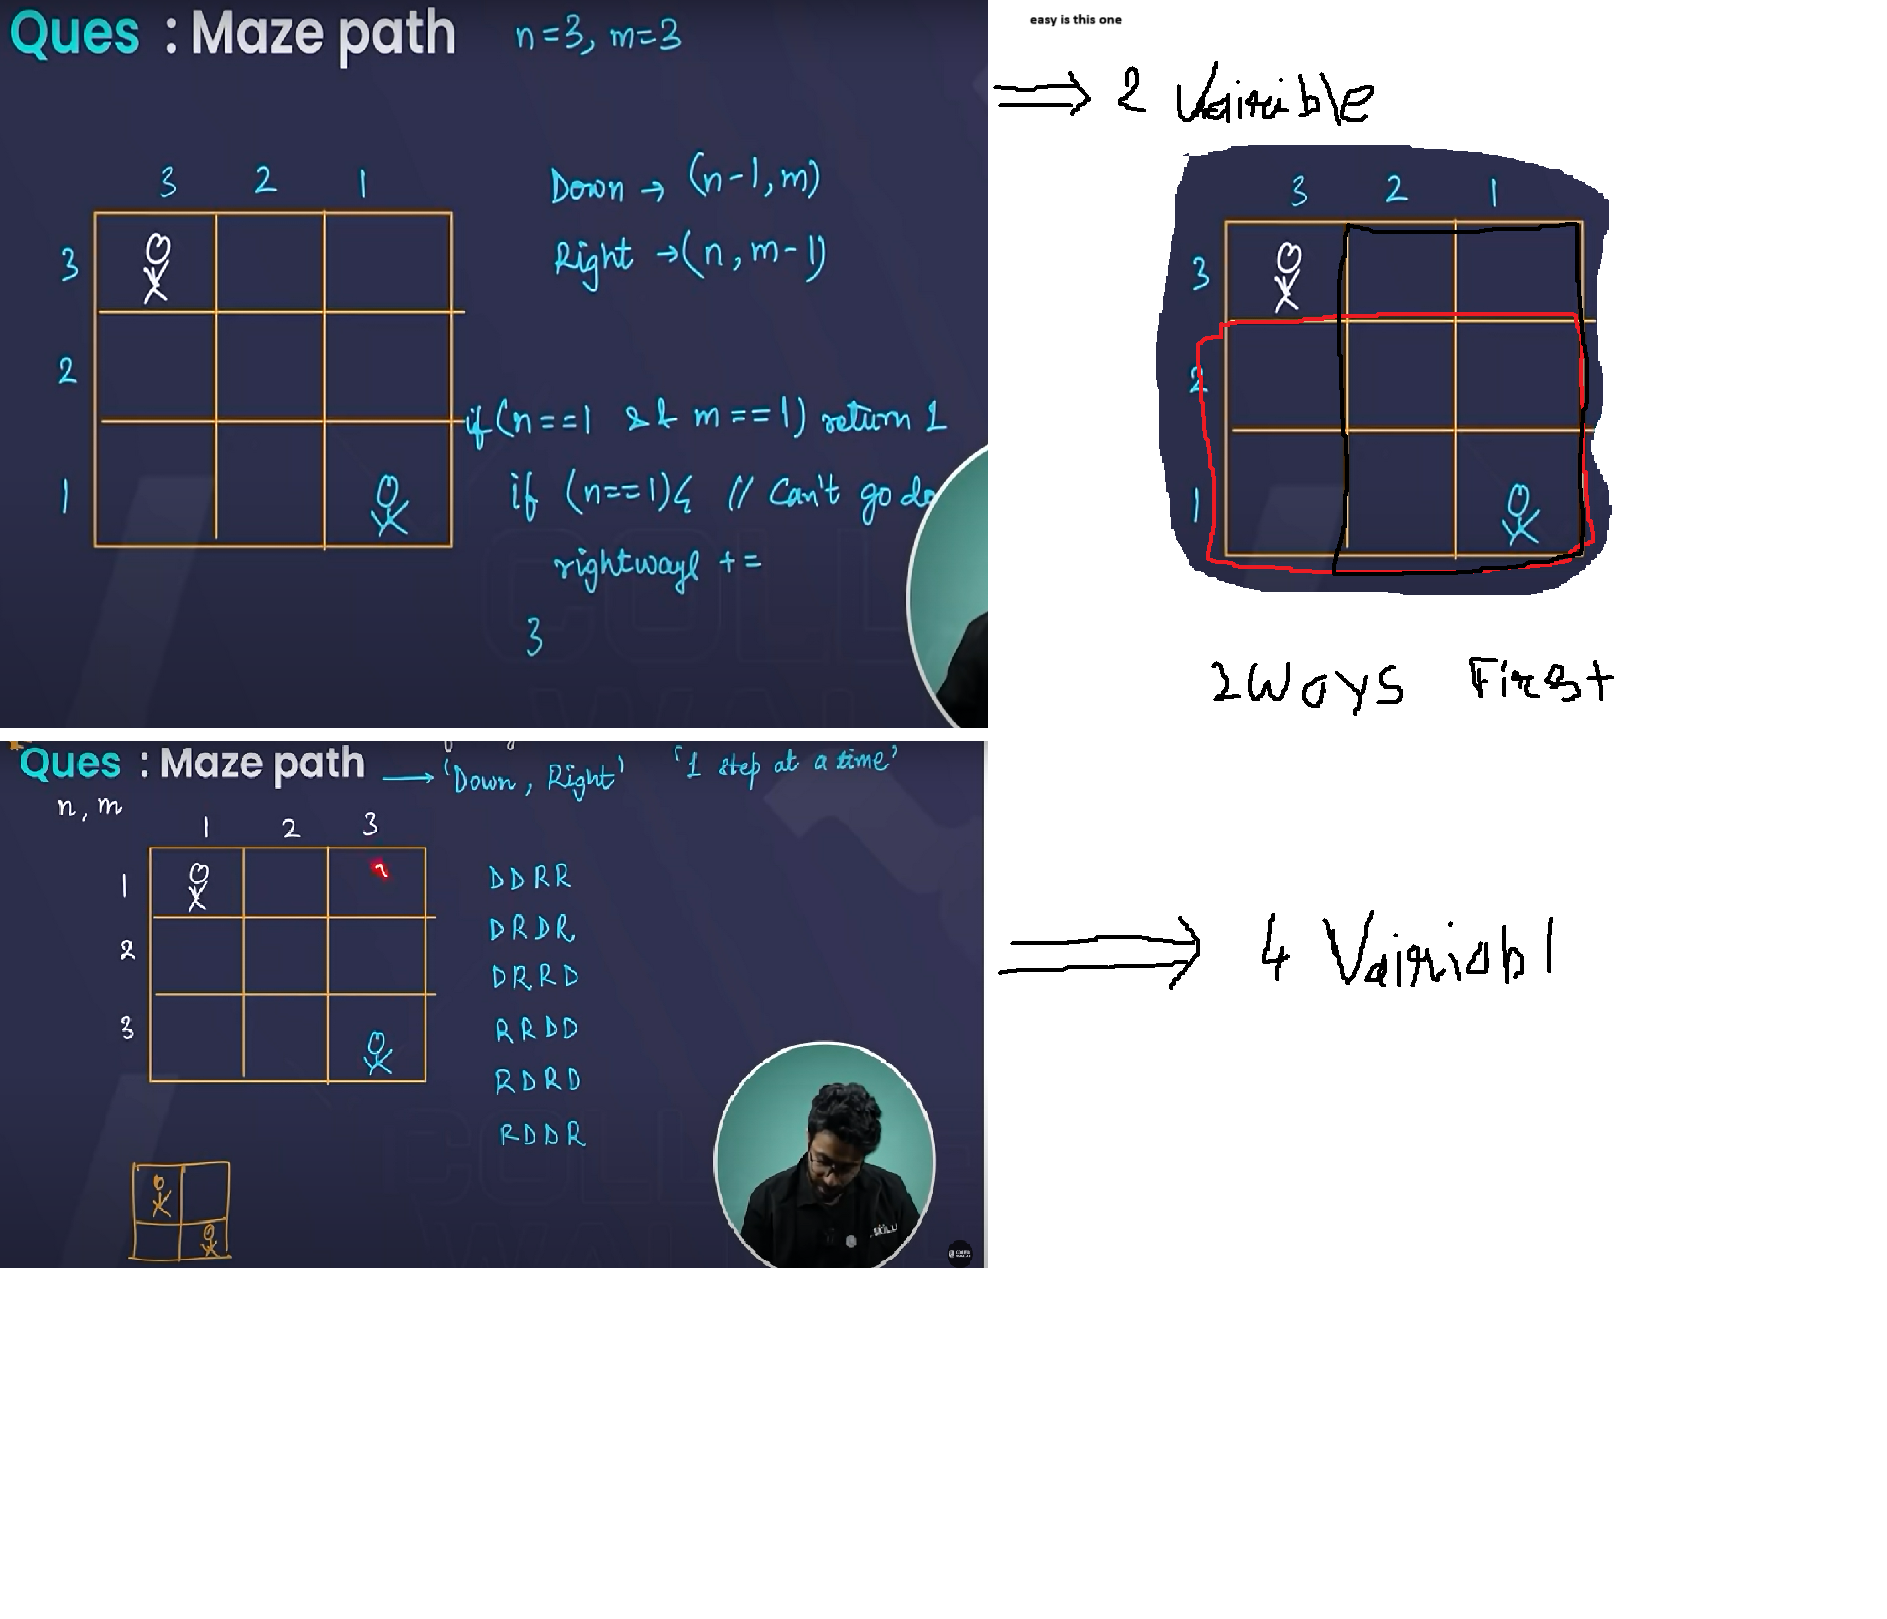 Ques : Maze path n=3, m=3
3 2 1
3
2
1
Down → (n-1, m)
Right → (n, m-1)
if (n==1 && m==1) return 1
if (n==1){ // Can't go do
rightways +=
}
easy is this one
⇒ 2 Vairible
3 2 1
3
2
1
2 Ways First
Ques : Maze path → 'Down, Right' '1 step at a time'
n, m
1 2 3
1
2
3
DDRR
DRDR
DRRD
RRDD
RDRD
RDDR
⇒ 4 Vairiabl